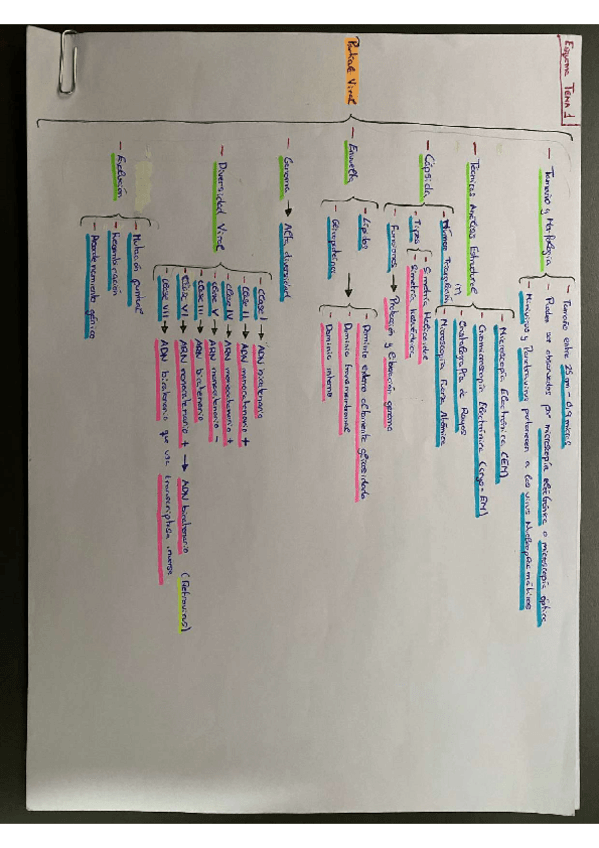 Esquema TEMA 1
Partícula Viral
- Tamaño y Morfología
- Tamaño entre 25 nm - 0,9 micras
- Pueden ser observados por microscopía electrónica o microscopía óptica
- Mimivirus y Pandoravirus pertenecen a los virus
- Técnicas Análisis Estructural
- Microscopía Electrónica (EM)
- Criomicroscopía Electrónica (cryo-EM)
- Cristalografía de Rayos
- Microscopía Fuerza Atómica
- Cápsida
- Número Triangulación
- Tipos
- Simetría Helicoidal
- Simetría Icosaédrica
- Funciones → Protección y liberación genoma
- Envuelta
- Lípidos
- Glicoproteínas →
- Dominio externo altamente glicosilado
- Dominio transmembrana
- Dominio interno
- Genoma → Alta diversidad
- Diversidad Viral
- Clase I → ADN bicatenario
- Clase II → ADN monocatenario +
- Clase IV → ARN monocatenario +
- Clase V → ARN monocatenario -
- Clase III → ARN bicatenario
- Clase VI → ARN monocatenario + → ADN bicatenario (Retrovirus)
- Clase VII → ADN bicatenario que usa transcriptasa inversa
- Evolución
- Mutación puntual
- Recombinación
- Reordenamiento génico